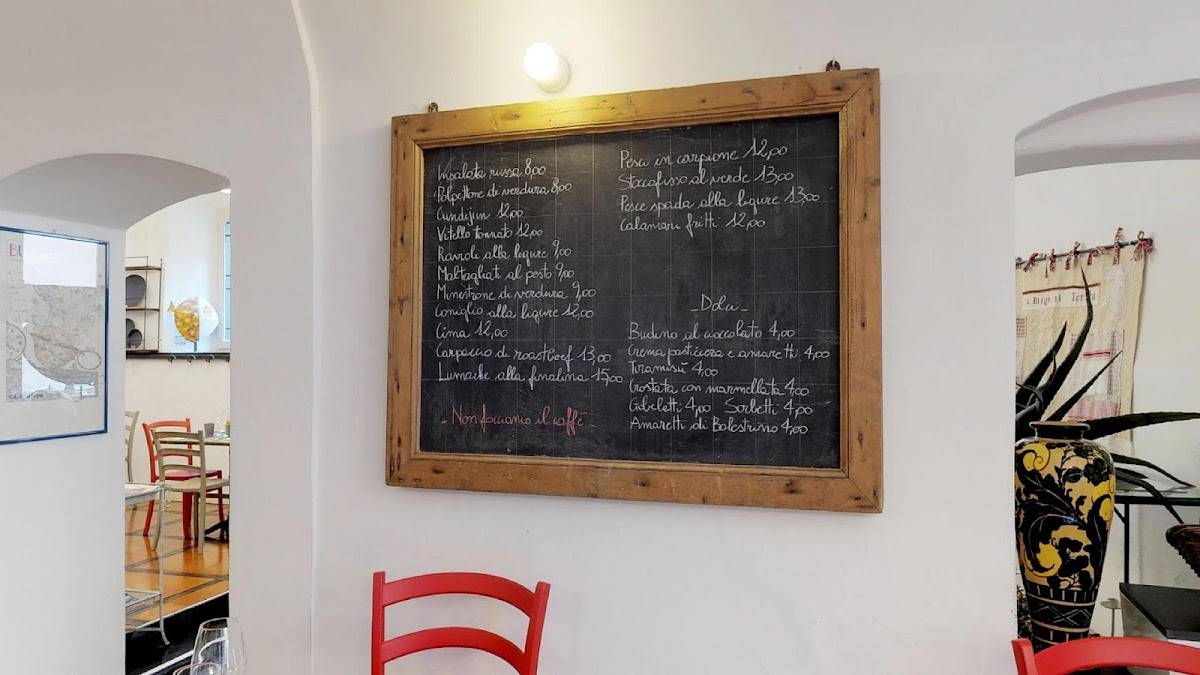 Insalata russa 8,00
Polpettone di verdura 8,00
Cundijun 12,00
Vitello tonnato 12,00
Ravioli alla ligure 9,00
Maltagliati al pesto 9,00
Minestrone di verdura 9,00
Coniglio alla ligure 12,00
Cima 12,00
Carpaccio di roastbeef 13,00
Lumache alla finalina 15,00
- Non facciamo il caffè -
Pesci in carpione 12,00
Stoccafisso al verde 13,00
Pesce spada alla ligure 13,00
Calamari fritti 12,00
- Dolci -
Budino al cioccolato 4,00
Crema pasticcera e amaretti 4,00
Tiramisù 4,00
Crostata con marmellata 4,00
Gobeletti 4,00 Sorbetti 4,00
Amaretti di Balestrino 4,00